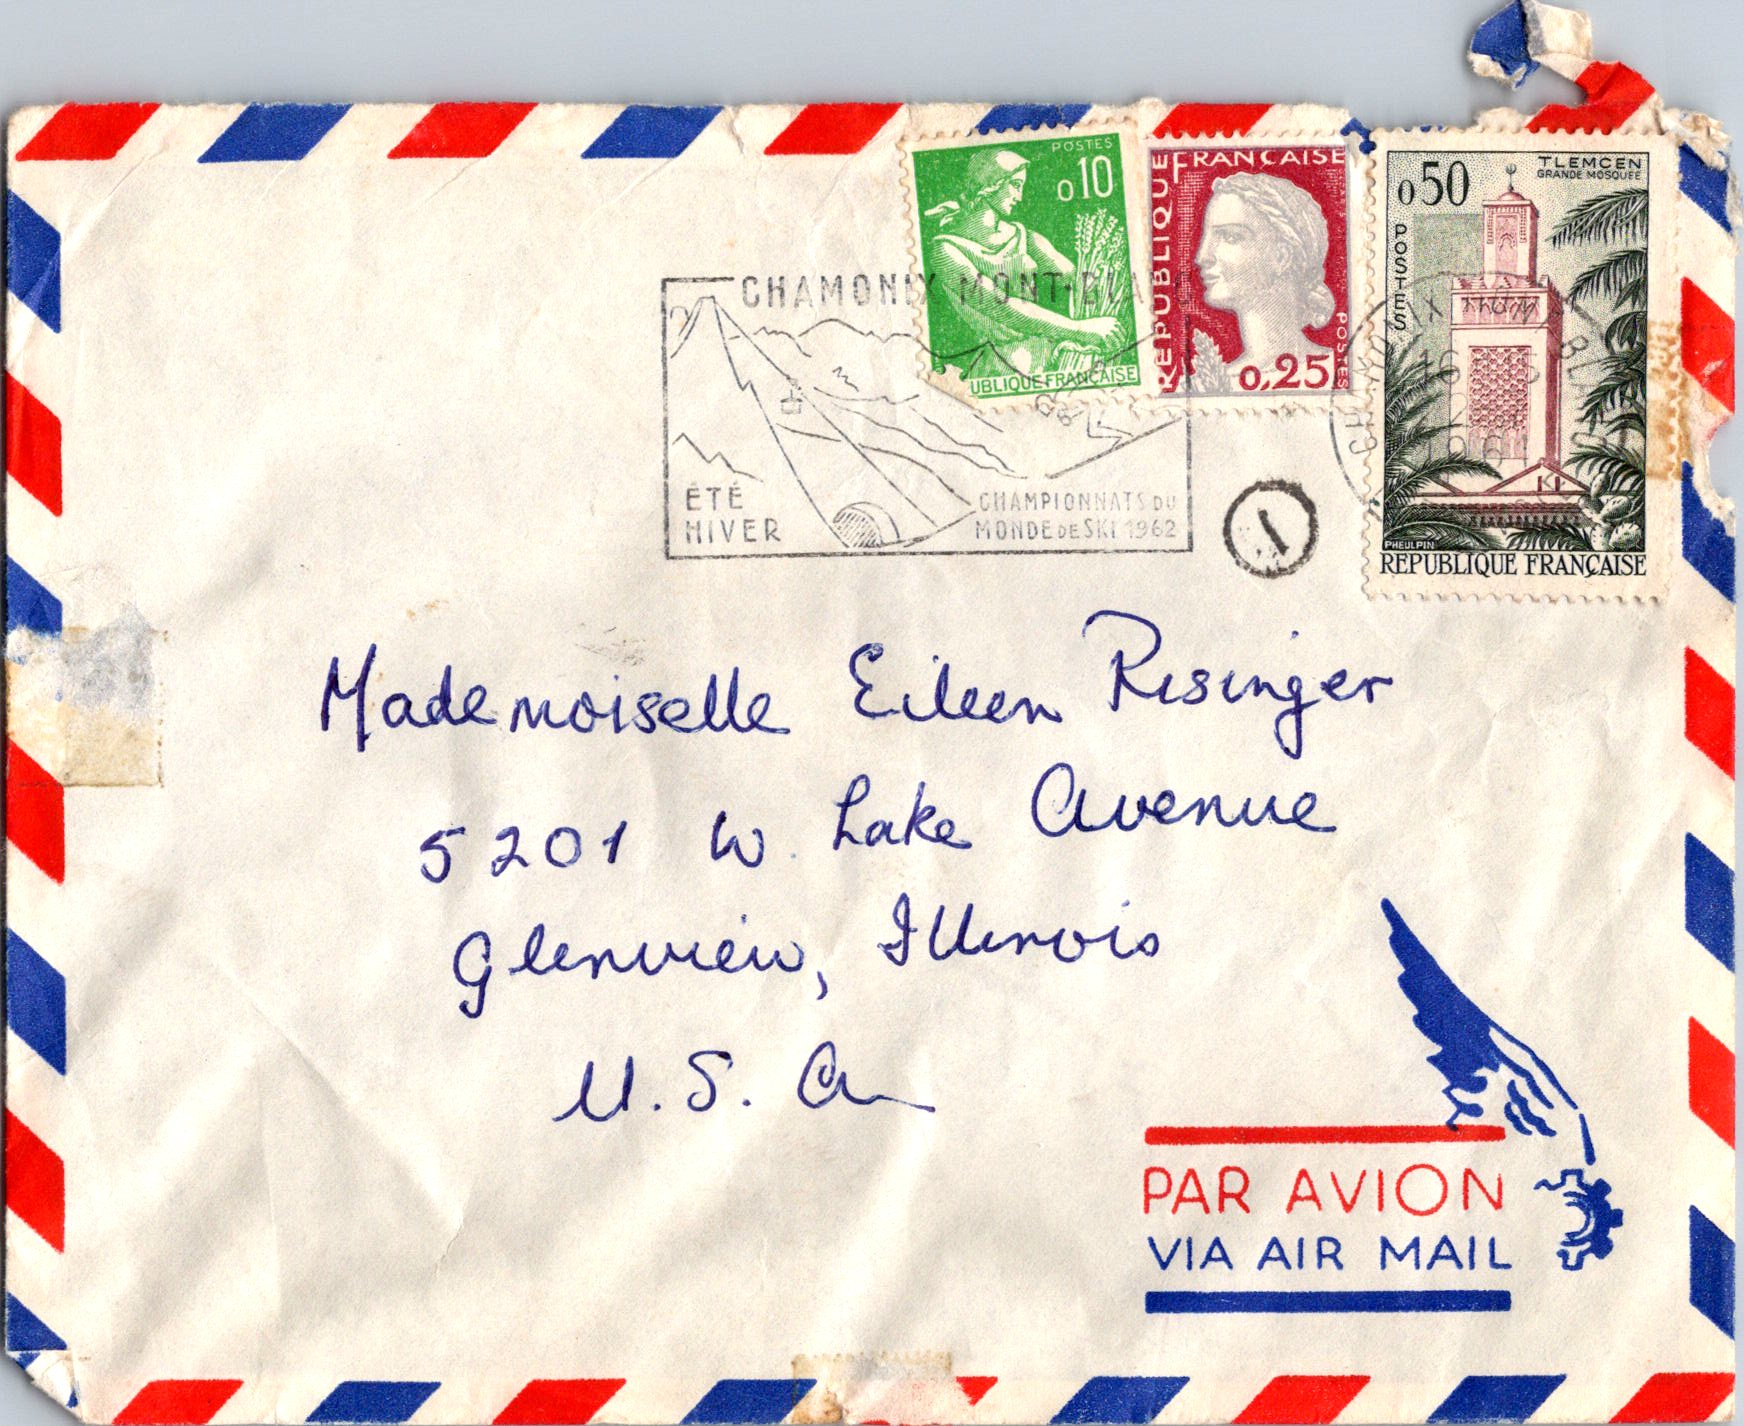 POSTES
0,10
UBLIQUE FRANÇAISE
RÉPUBLIQUE FRANÇAISE
POSTES
0,25
0,50
TLEMCEN
GRANDE MOSQUÉE
POSTES
PHEULPIN
REPUBLIQUE FRANÇAISE
CHAMONIX MONT-BLANC
ÉTÉ
HIVER
CHAMPIONNATS DU
MONDE DE SKI 1962
1
Mademoiselle Eileen Risinger
5201 W. Lake Avenue
Glenview, Illinois
U.S.A
PAR AVION
VIA AIR MAIL